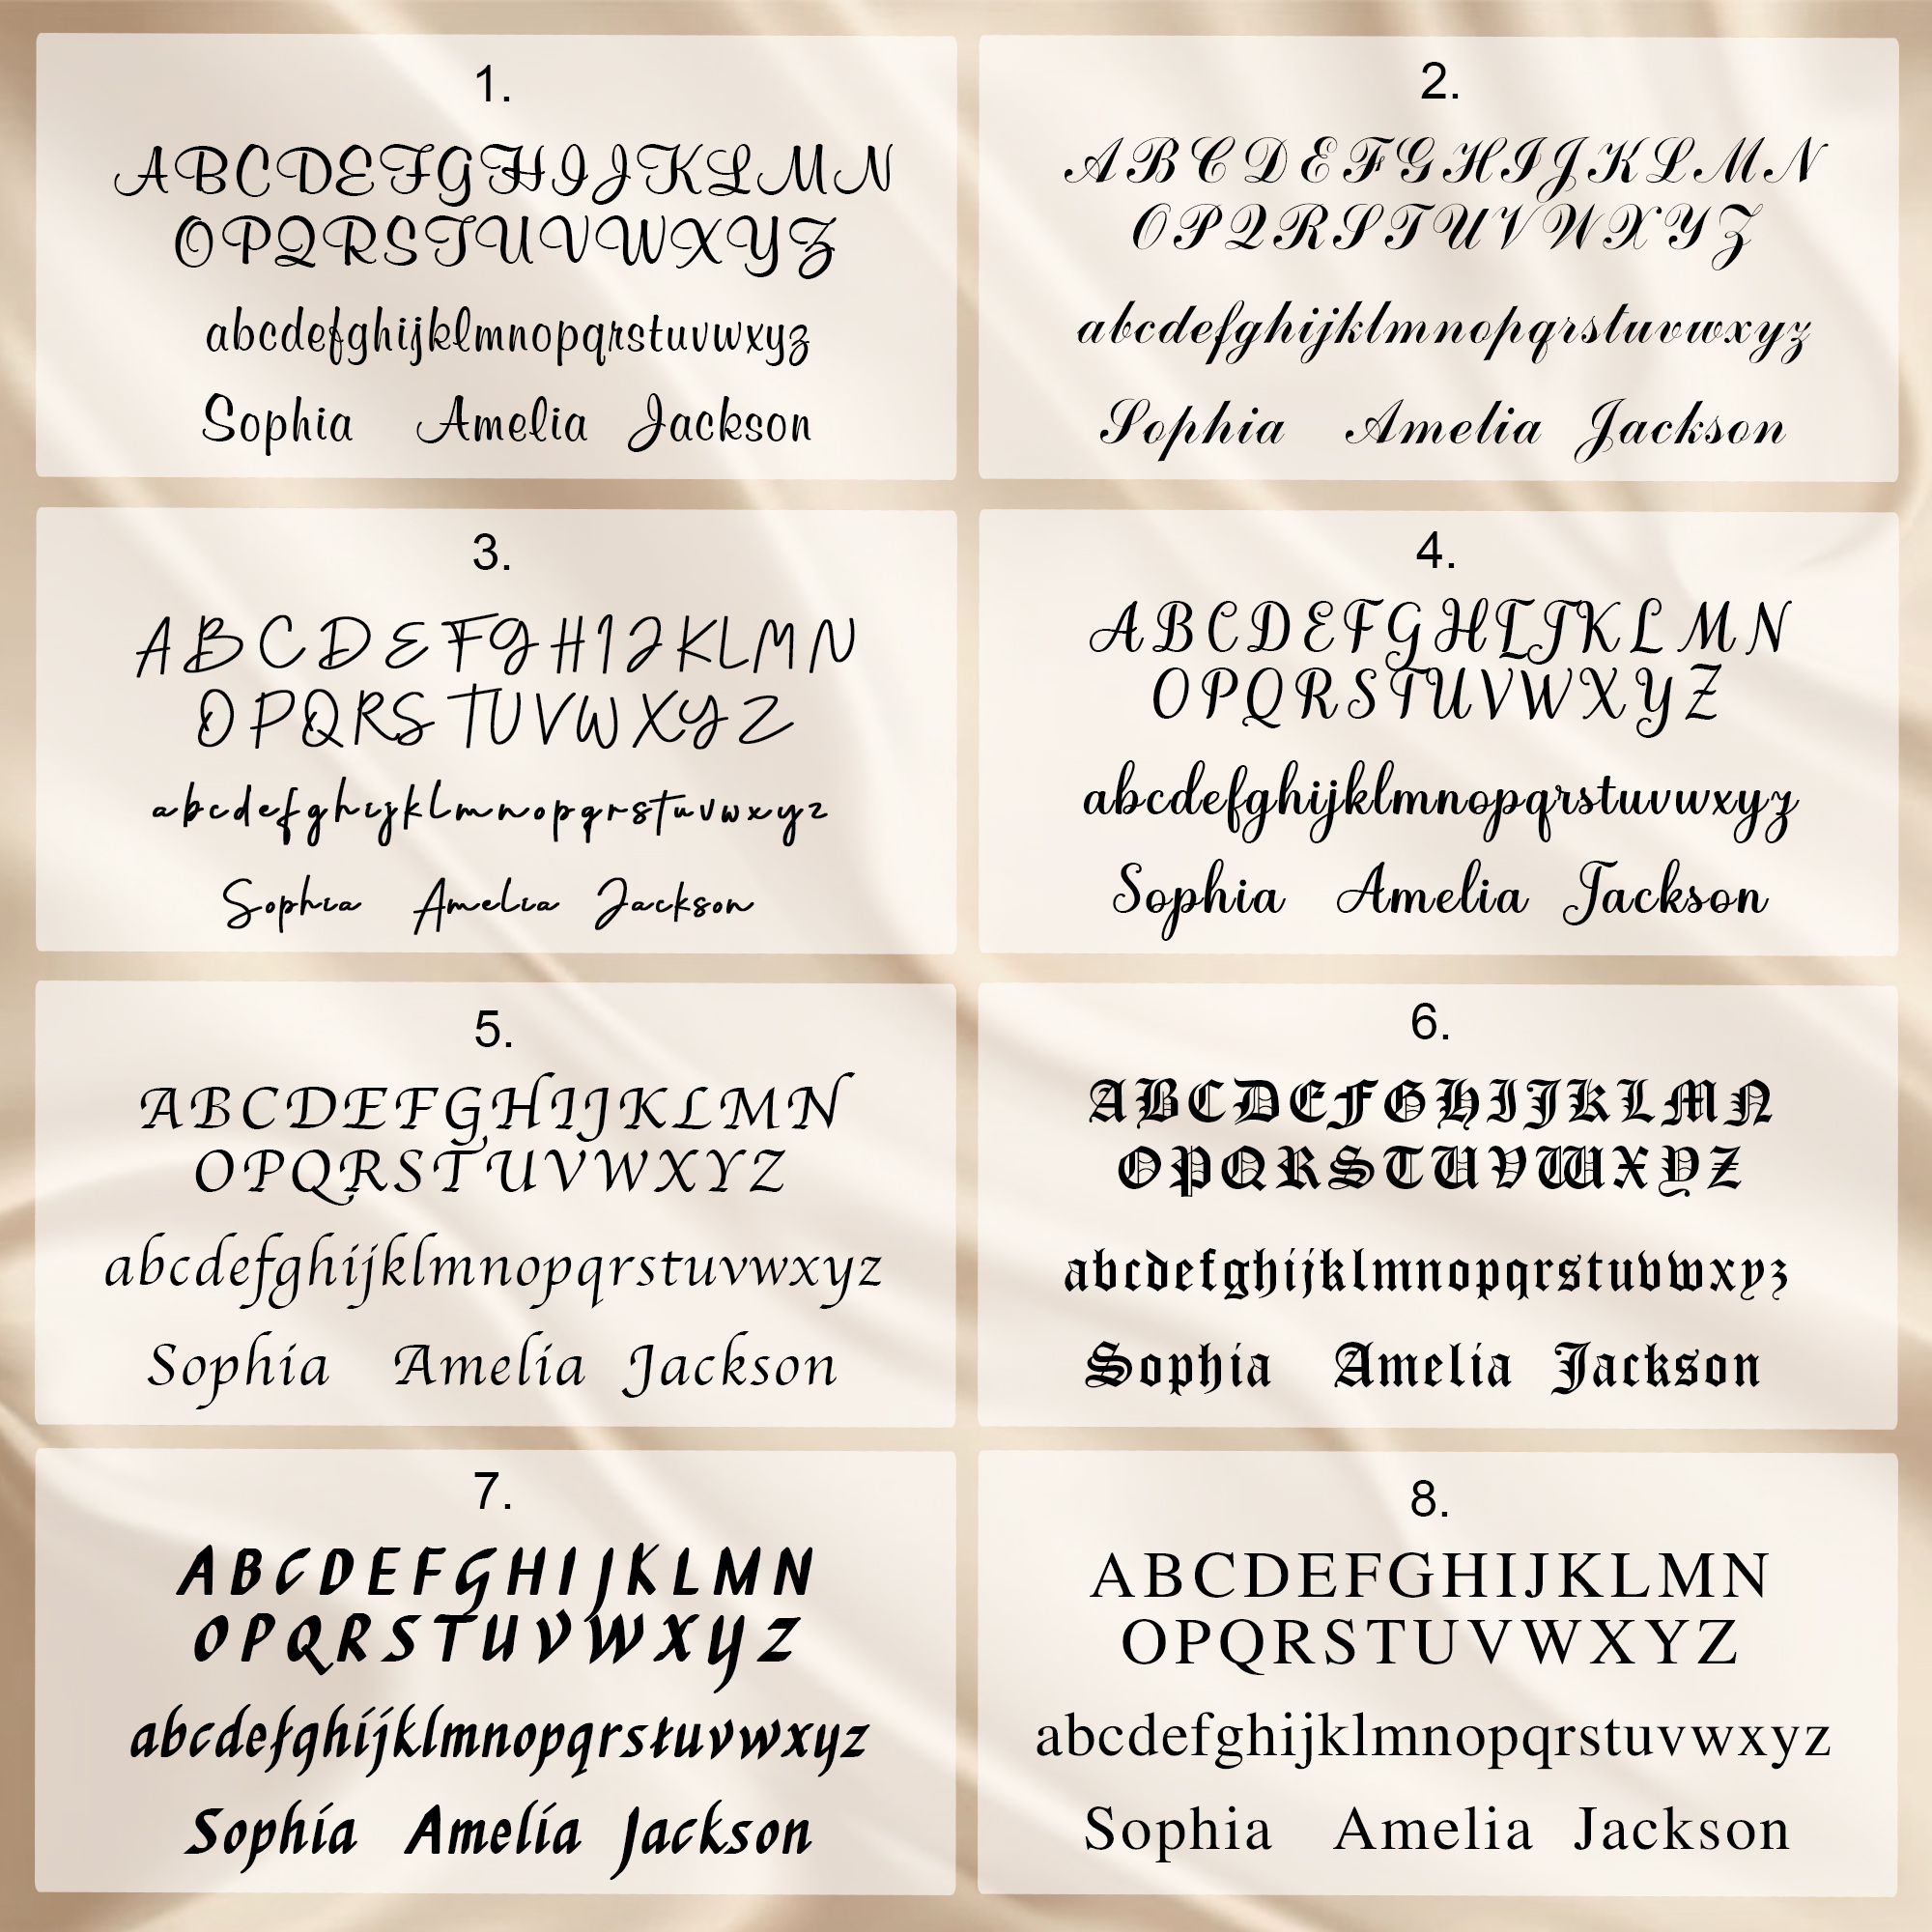 1.
ABCDEFGHIJKLMN
OPQRSTUVWXYZ
abcdefghijklmnopqrstuvwxyz
Sophia Amelia Jackson
2.
ABCDEFGHIJKLMN
OPQRSTUVWXYZ
abcdefghijklmnopqrstuvwxyz
Sophia Amelia Jackson
3.
ABCDEFGHIJKLMN
OPQRSTUVWXYZ
abcdefghijklmnopqrstuvwxyz
Sophia Amelia Jackson
4.
ABCDEFGHIJKLMN
OPQRSTUVWXYZ
abcdefghijklmnopqrstuvwxyz
Sophia Amelia Jackson
5.
ABCDEFGHIJKLMN
OPQRSTUVWXYZ
abcdefghijklmnopqrstuvwxyz
Sophia Amelia Jackson
6.
ABCDEFGHIJKLMN
OPQRSTUVWXYZ
abcdefghijklmnopqrstuvwxyz
Sophia Amelia Jackson
7.
ABCDEFGHIJKLMN
OPQRSTUVWXYZ
abcdefghijklmnopqrstuvwxyz
Sophia Amelia Jackson
8.
ABCDEFGHIJKLMN
OPQRSTUVWXYZ
abcdefghijklmnopqrstuvwxyz
Sophia Amelia Jackson